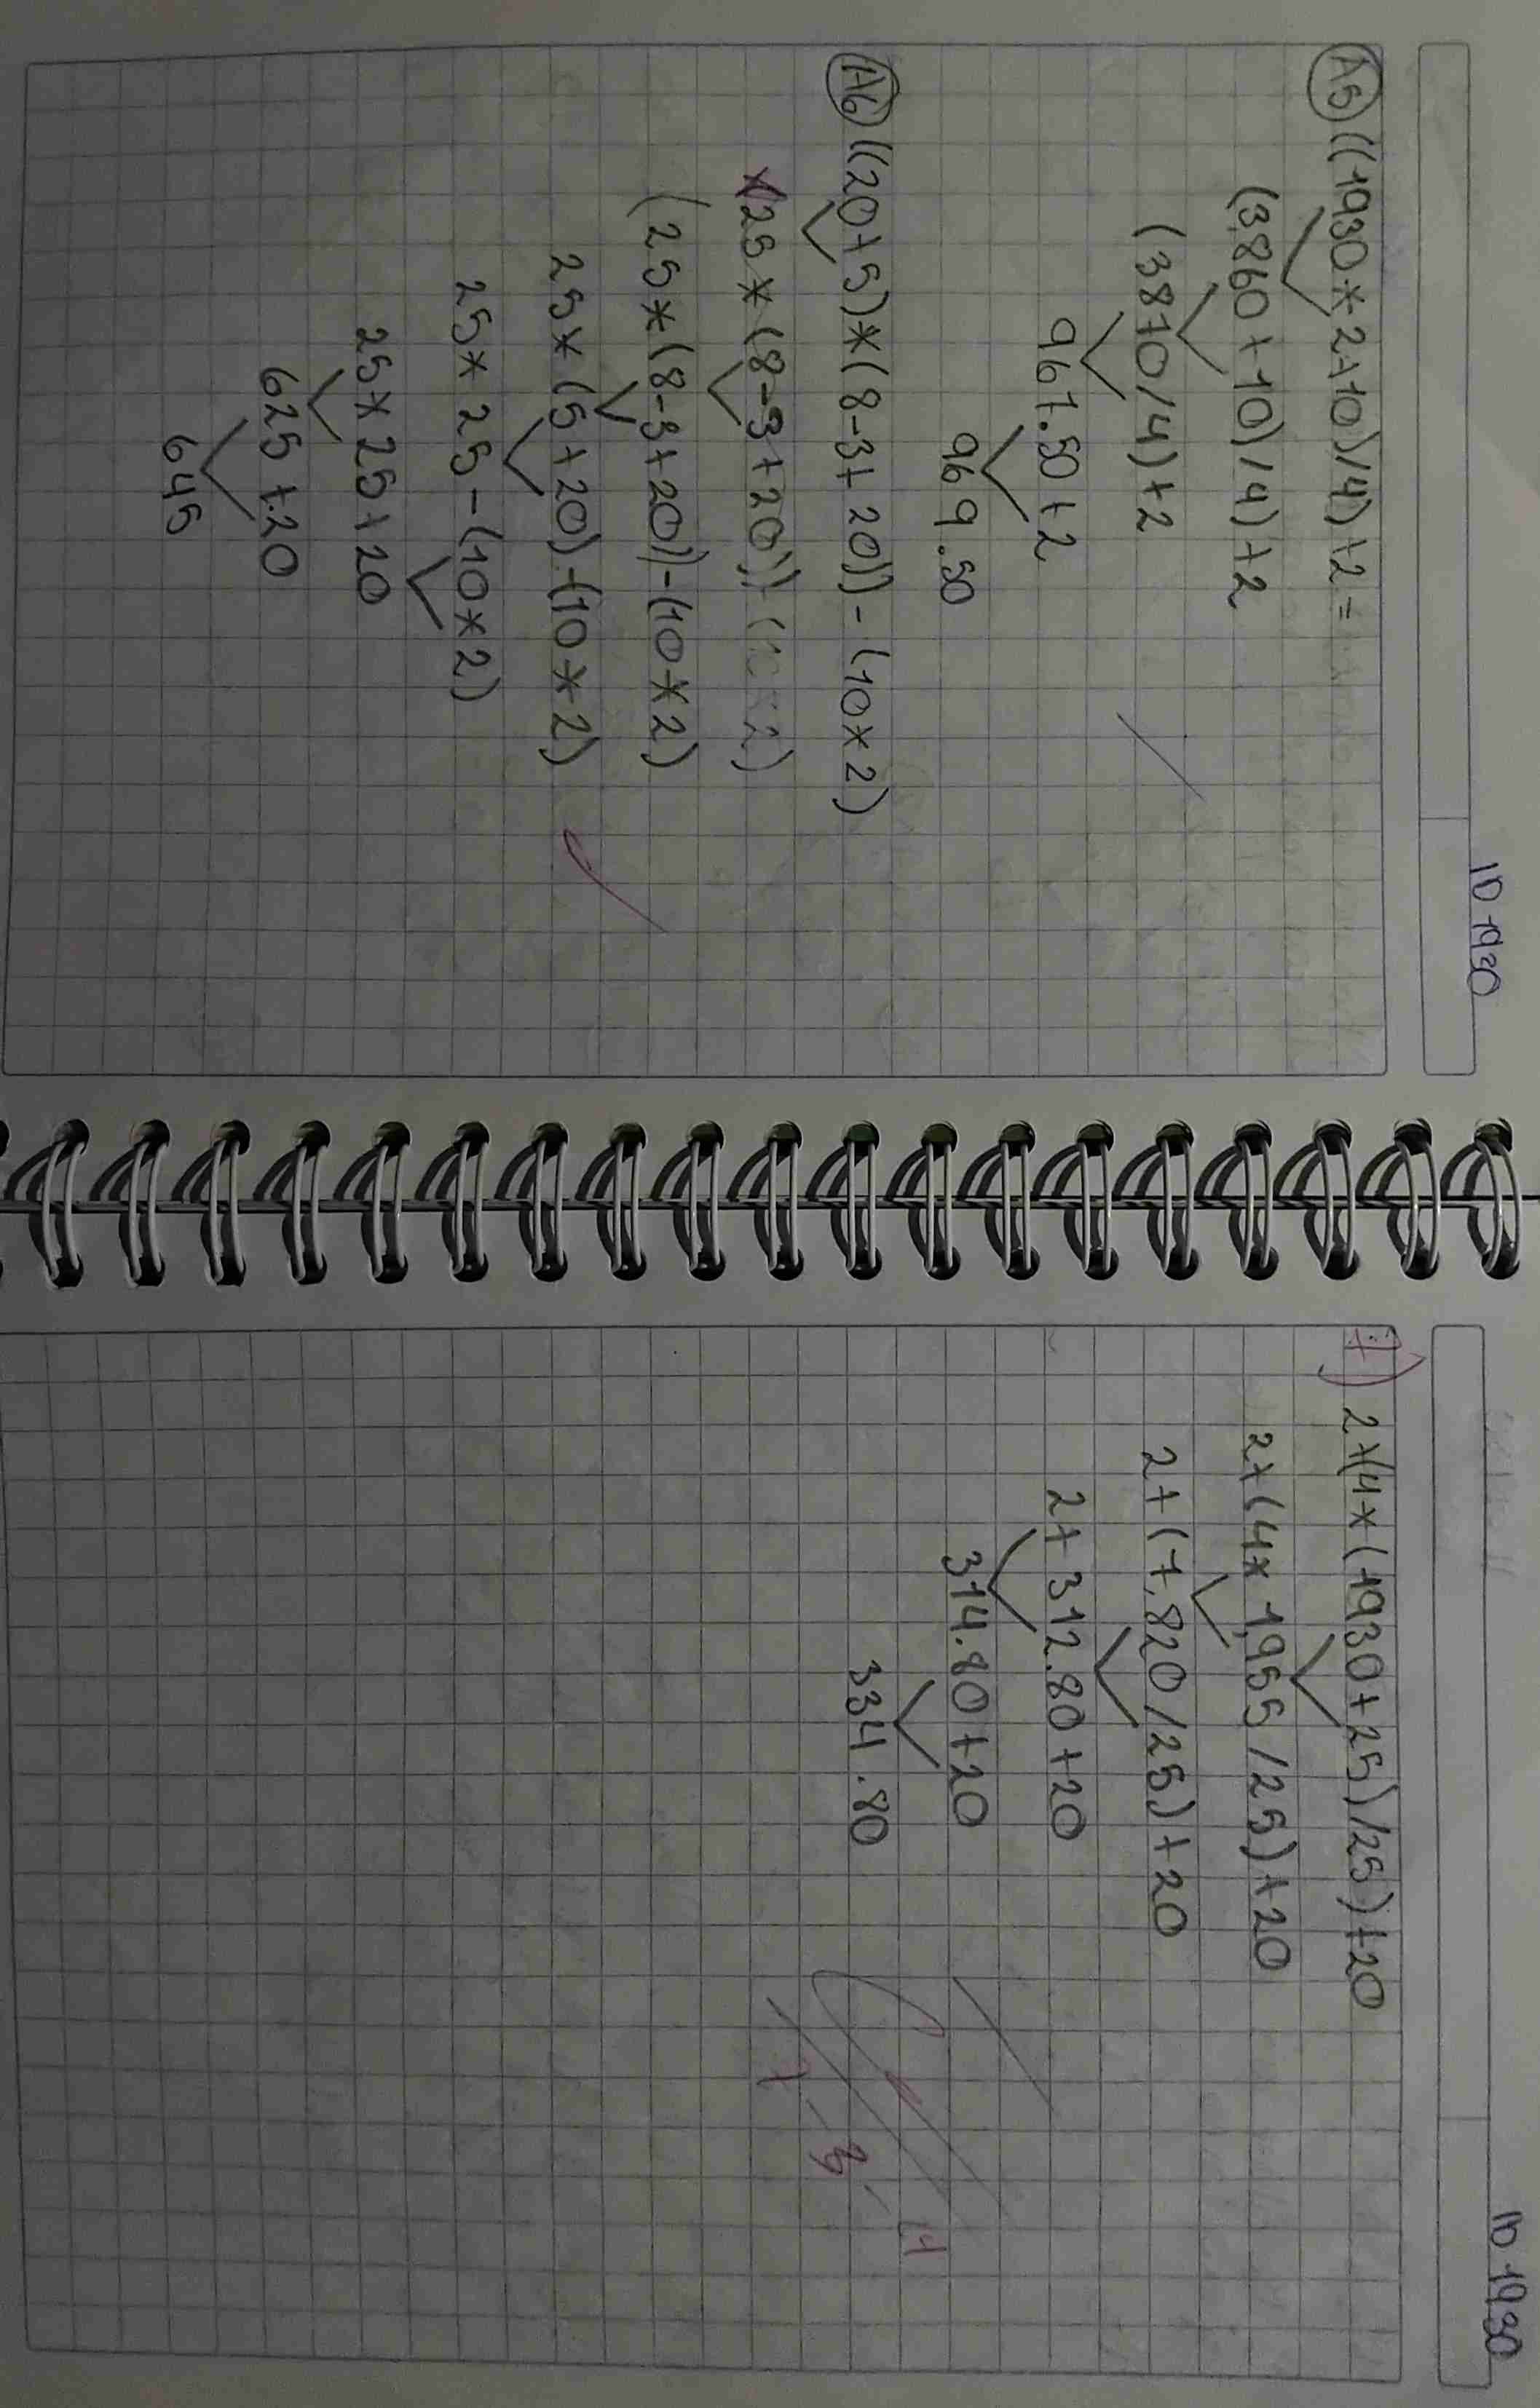 ID 1930
A5 ((1930*2+10)/4)+2=
(3,860+10)/4)+2
(3870/4)+2
967.50+2
969.50
A6 ((20+5)*(8-3+20))-(10x2)
(25*(8-3+20))-(10x2)
(25*(8-3+20))-(10*2)
25*(5+20)-(10*2)
25*25-(10*2)
25*25+20
625+20
645
ID 1930
7) 2+(4x(1930+25)/25)+20
2+(4x1,955/25)+20
2+(7,820/25)+20
2+312.80+20
314.80+20
334.80